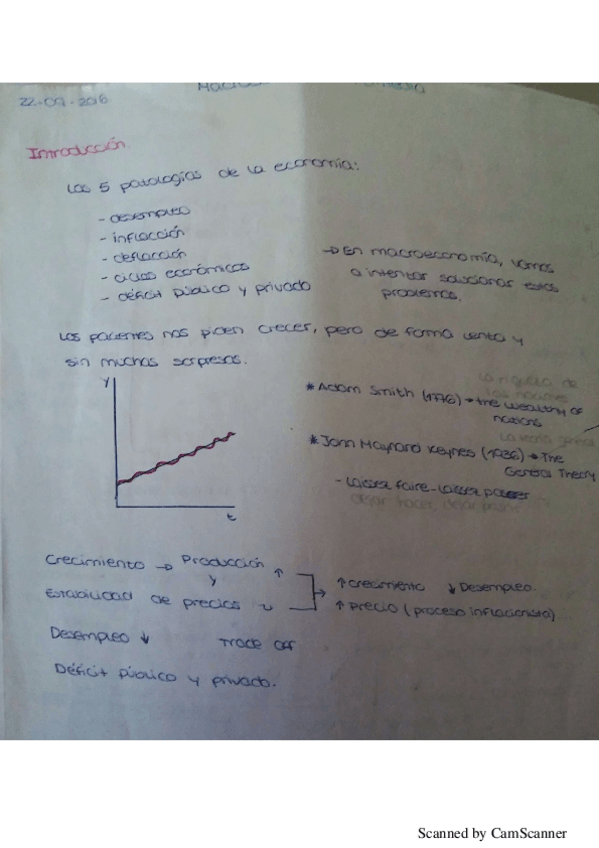 22-09-2016
Introducción
Las 5 patologías de la economía:
- desempleo
- inflacción
- deflacción
- ciclos económicos
- déficit público y privado
→ En macroeconomía, vamos
a intentar solucionar estos
problemas.
Los pacientes nos piden crecer, pero de forma lenta y
sin muchas sorpresas.
Y
t
* Adam Smith (1776) → the wealthy of
nations
la riqueza de
las naciones
* John Maynard Keynes (1936) → The
General Theory
La teoría general
- Laisser faire - laisser passer
dejar hacer, dejar pasar
Crecimiento → Producción ↑
y
Estabilidad de precios
↑ crecimiento ↓ Desempleo.
↑ precio (proceso inflacionista)
Desempleo ↓ Trade off
Déficit público y privado.
Scanned by CamScanner